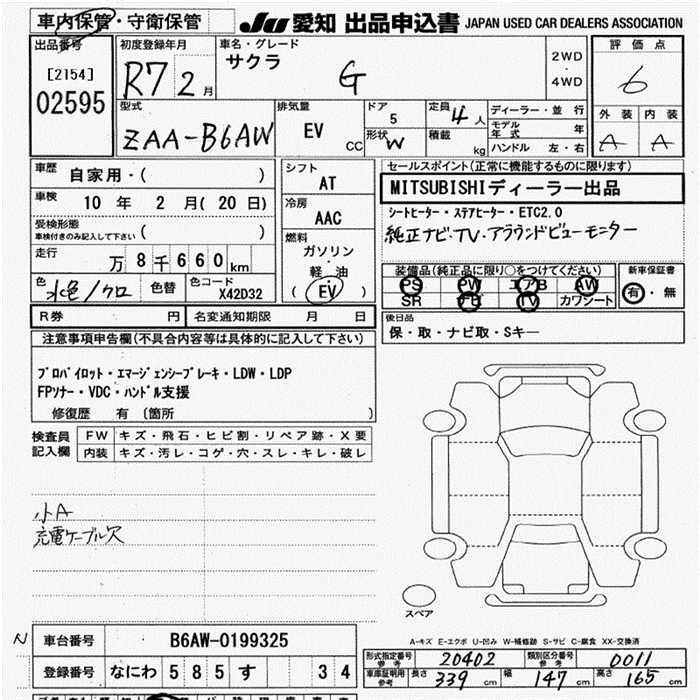 車内保管・守衛保管
JU 愛知 出品申込書 JAPAN USED CAR DEALERS ASSOCIATION
出品番号
[2154]
02595
初度登録年月
R7 2月
車名・グレード
サクラ G
2WD
・
4WD
評価点
6
外装 内装
A A
型式
ZAA-B6AW
排気量
EV CC
ドア
5
形状 W
定員 4人
積載 kg
ディーラー・並行
モデル年式 年
ハンドル 左・右
車歴 自家用・( )
車検 10年 2月(20日)
受検形態
車検付きのみ記入して下さい ( )
走行 万8千660km
色 水色/クロ 色替 色コード X42D32
シフト
AT
冷房
AAC
燃料
ガソリン
軽・油
(EV)
セールスポイント(正常に機能するものに限ります)
MITSUBISHIディーラー出品
シートヒーター・ステアヒーター・ETC2.0
純正ナビ・TV・アラウンドビューモニター
装備品(純正品に限り○をつけてください)
PS PW エアB AW
SR ナビ TV カワシート
新車保証書
有・無
後日品
保・取・ナビ取・Sキー
R券 円 名変通知期限 月 日
注意事項申告欄(不具合内容等は具体的に記入して下さい)
プロパイロット・エマージェンシーブレーキ・LDW・LDP
FPソナー・VDC・ハンドル支援
修復歴 有 〔箇所 〕
検査員記入欄
FW キズ・飛石・ヒビ割・リペア跡・X要
内装 キズ・汚レ・コゲ・穴・スレ・キレ・破レ
小A
充電ケーブル欠
スペア
A-キズ E-エクボ U-凹み W-補修跡 S-サビ C-腐食 XX-交換済
N
車台番号 B6AW-0199325
登録番号 なにわ 585 す 34
形式指定番号 参考 20402 類別区分番号 参考 0011
車庫証明用 参考 長さ 339cm 幅 147cm 高さ 165cm